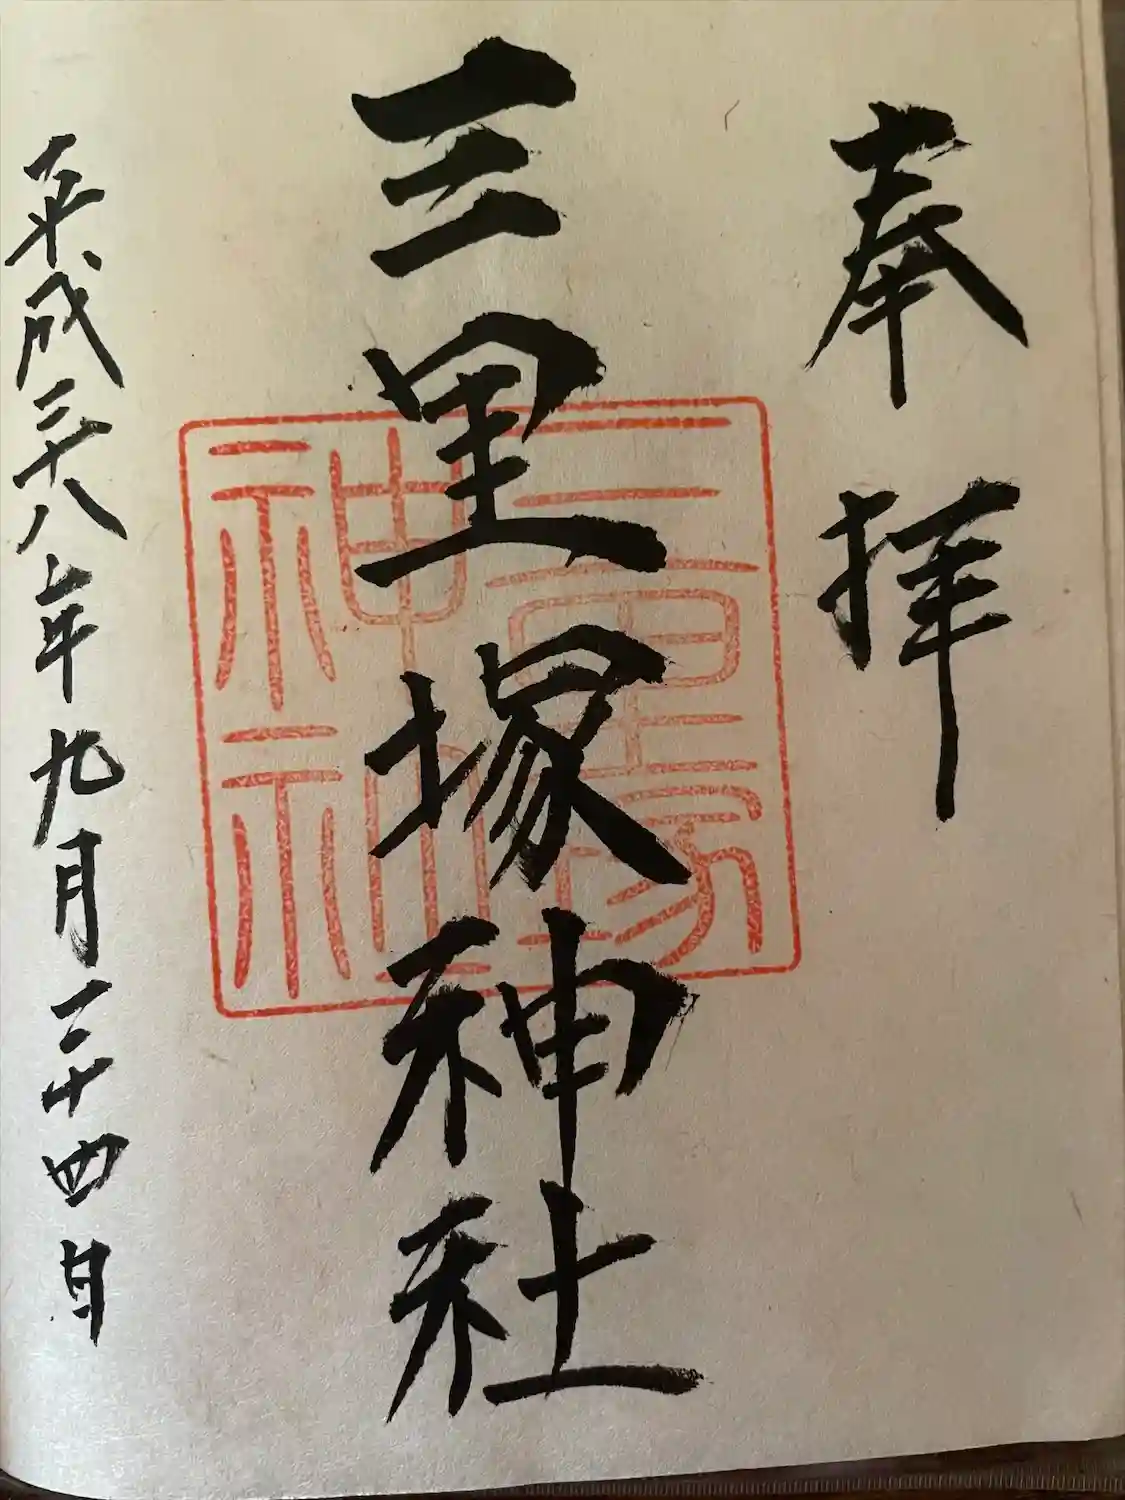 奉拝
三里塚神社
三里塚
神社
平成二十八年九月二十四日